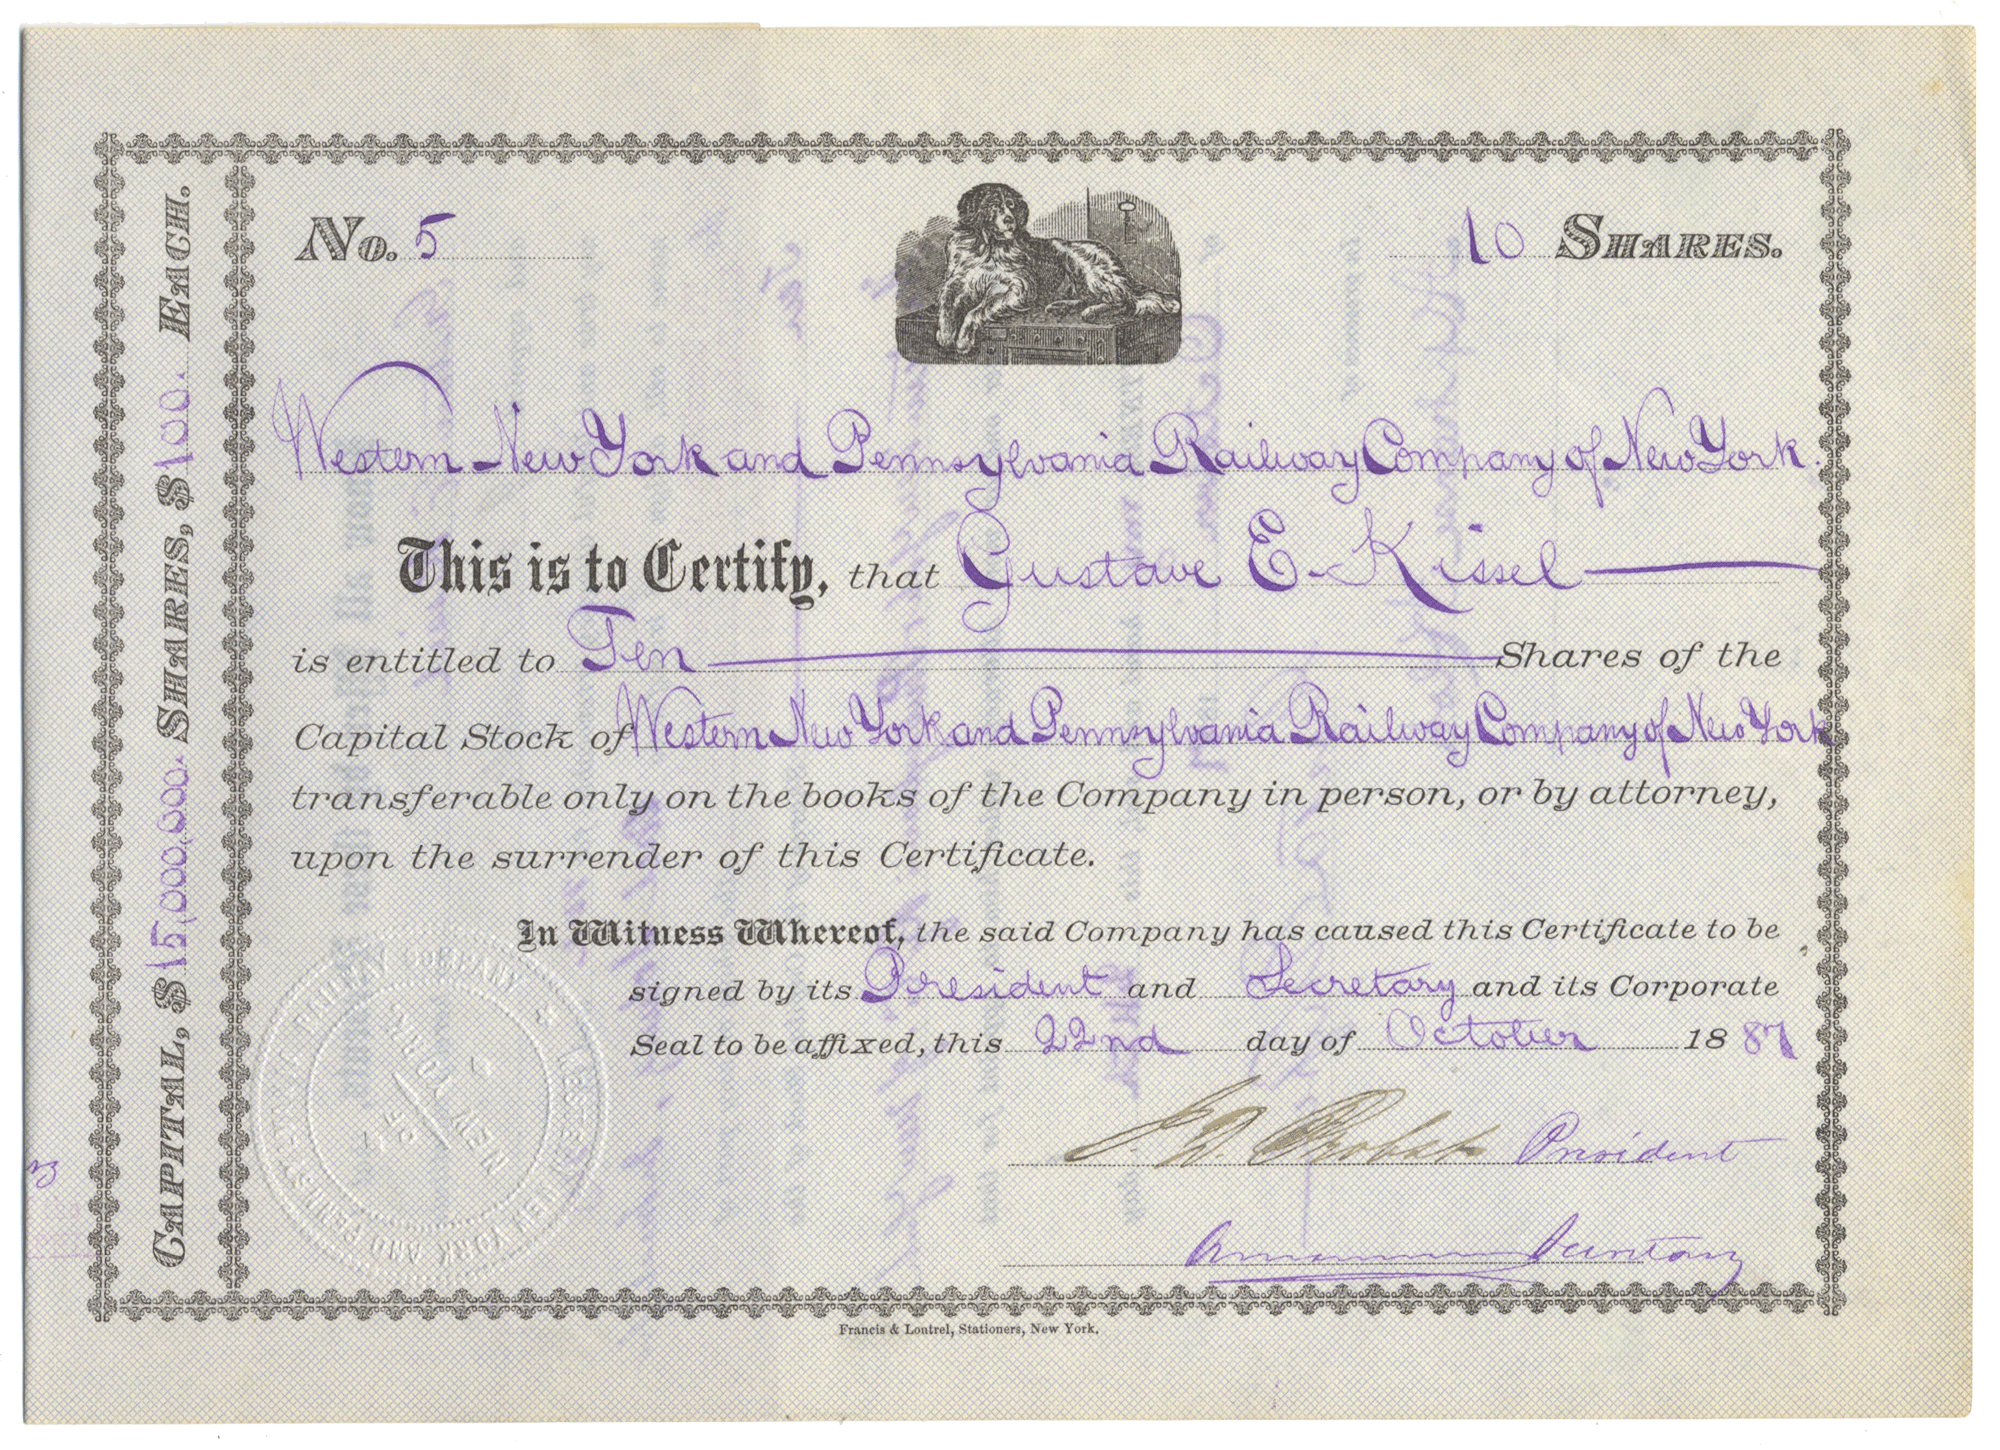 No. 5
10 SHARES.
CAPITAL, $15,000,000. SHARES, $100. EACH.
Western New York and Pennsylvania Railway Company of New York.
This is to Certify, that Gustave E. Kissel
is entitled to Ten Shares of the
Capital Stock of Western New York and Pennsylvania Railway Company of New York
transferable only on the books of the Company in person, or by attorney,
upon the surrender of this Certificate.
In Witness Whereof, the said Company has caused this Certificate to be
signed by its President and Secretary and its Corporate
Seal to be affixed, this 22nd day of October 1887
President
WESTERN NEW YORK AND PENNSYLVANIA RAILWAY COMPANY
OF
NEW YORK
Francis & Loutrel, Stationers, New York.